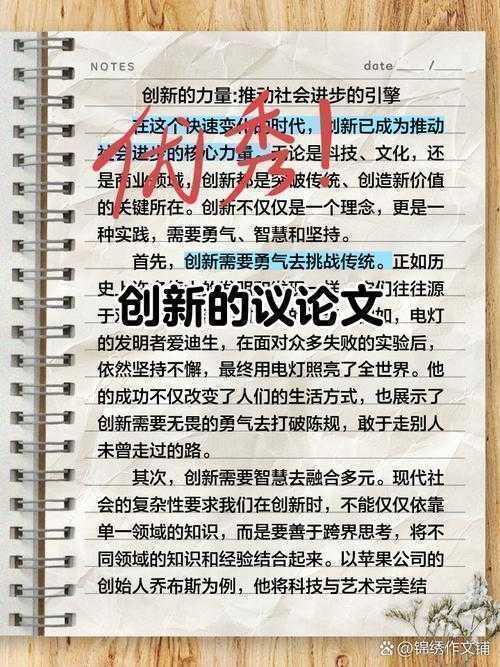 NOTES date / /
创新的力量:推动社会进步的引擎
优秀!
在这个快速变化的时代，创新已成为推动
社会进步的核心力量。无论是科技、文化，还
是商业领域，创新都是突破传统、创造新价值
的关键所在。创新不仅仅是一个理念，更是一
种实践，需要勇气、智慧和坚持。
首先，创新需要勇气去挑战传统。正如历
史上 们往往源
创新的议论文
于 的 如，电灯
的发明者爱迪生，在面对众多失败的实验后，
依然坚持不懈，最终用电灯照亮了全世界。他
的成功不仅改变了人们的生活方式，也展示了
创新需要无畏的勇气去打破陈规，敢于走别人
未曾走过的路。
其次，创新需要智慧去融合多元。现代社
会的复杂性要求我们在创新时，不能仅仅依靠
单一领域的知识，而是要善于跨界思考，将不
同领域的知识和经验结合起来。以苹果公司的
创始人乔布斯为例，他将科技与艺术完美结
@锦绣作文铺